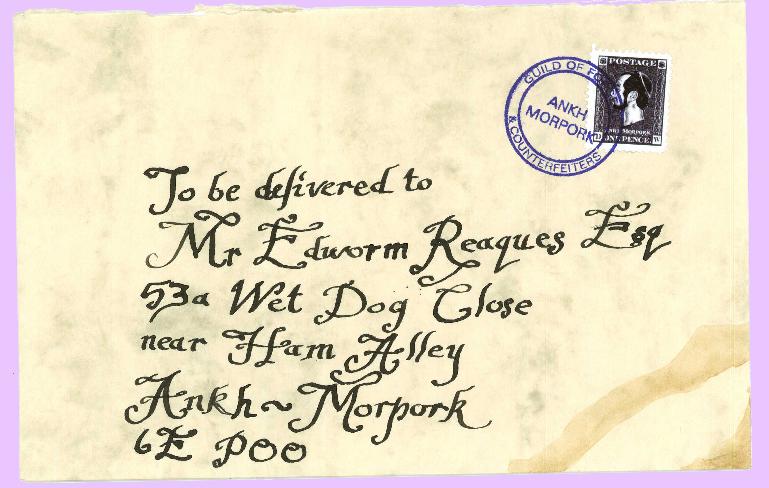 GUILD OF
ANKH
MORPORK
& COUNTERFEITERS
POSTAGE
MORPORK
ONE PENCE
To be delivered to
Mr Edworm Reaques Esq
53a Wet Dog Close
near Ham Alley
Ankh~Morpork
6E POO